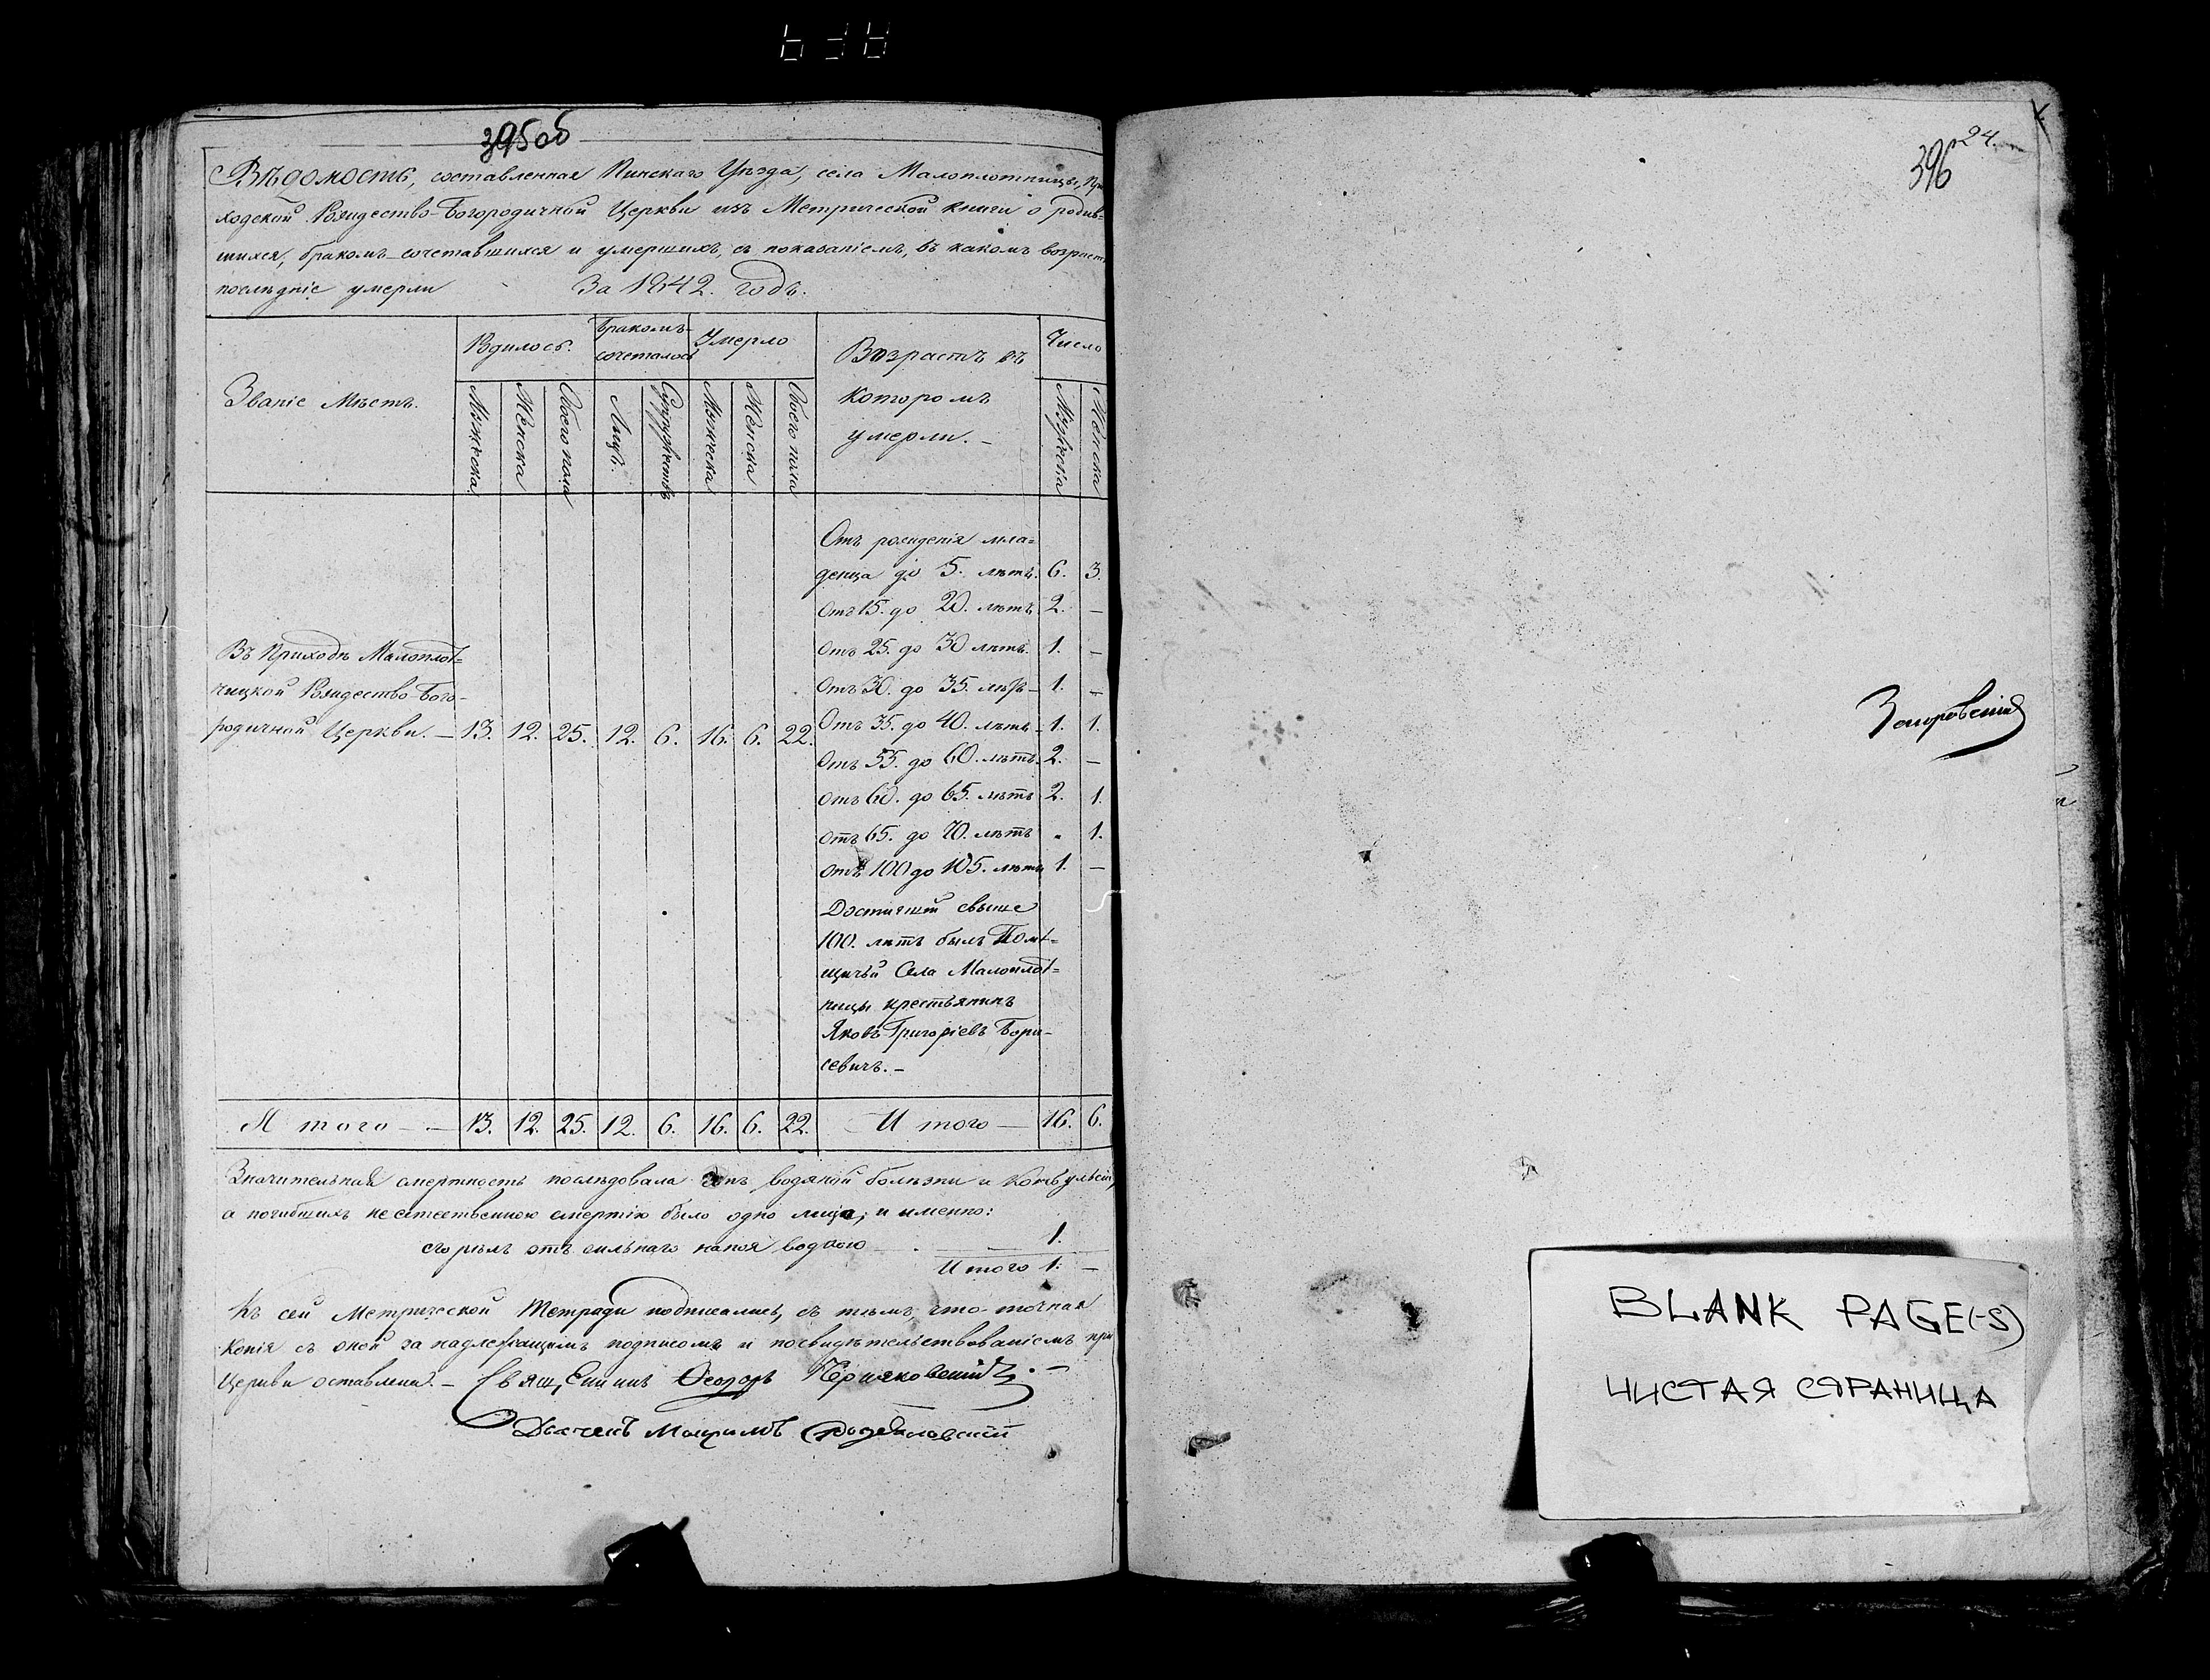 395об
Вѣдомость, составленная Пинскаго Уѣзда, села Малоплотницы, При
ходской Рождество-Богородичной Церкви изъ Метрической книги о родив=
шихся, бракомъ-сочетавшихся и умершихъ, съ показаніемъ, въ какомъ возрастѣ
послѣдніе умерли За 1842. годъ.
Званіе Мѣстъ.
Родилось.
Бракомъ-
сочеталось
Умерло
Возрастъ въ
которомъ
умерли. –
Число
Мужеска
Женска
Обоего пола
Лицъ.
Супружествъ
Мужеска
Женска
Обоего пола
Мужеска
Женска
Отъ рожденія мла=
денца до 5. лѣтъ. 6. 3.
Отъ 15. до 20. лѣтъ 2. –
Отъ 25. до 30 лѣтъ. 1. –
Отъ 30. до 35. лѣтъ – 1. –
Отъ 35. до 40. лѣтъ – 1. 1.
Отъ 55. до 60. лѣтъ. 2. –
Отъ 60. до 65. лѣтъ 2. 1.
Отъ 65. до 70. лѣтъ „ 1.
Отъ 100 до 105. лѣтъ 1. –
Достигшій свыше
100. лѣтъ былъ Помѣ=
щичьій Села Малоплот=
ницы крестьянинъ
Яковъ Григоріевъ Бори-
севичъ. –
Въ Приходѣ Малоплот=
ницкой Рождество-Бого-
родичной Церкви. – 13. 12. 25. 12. 6. 16. 6. 22.
Итого – 13. 12. 25. 12. 6. 16. 6. 22. Итого – 16. 6.
Значительная смертность послѣдовала отъ водяной болѣзни и Конвульсіи,
а погибшихъ неестественною смертію было одно лице, и именно:
сгорѣлъ отъ сильнаго напоя водкою 1.
Итого 1. –
Къ сей Метрической Тетради подписались, съ тѣмъ, что точная
копія съ оной за надлежащимъ подписомъ и посвидѣтельствованіемъ при
Церкви оставлена. – Священникъ Ѳеодоръ
Дьячекъ Максимъ
24.
396
BLANK PAGE(-S)
ЧИСТАЯ СТРАНИЦА